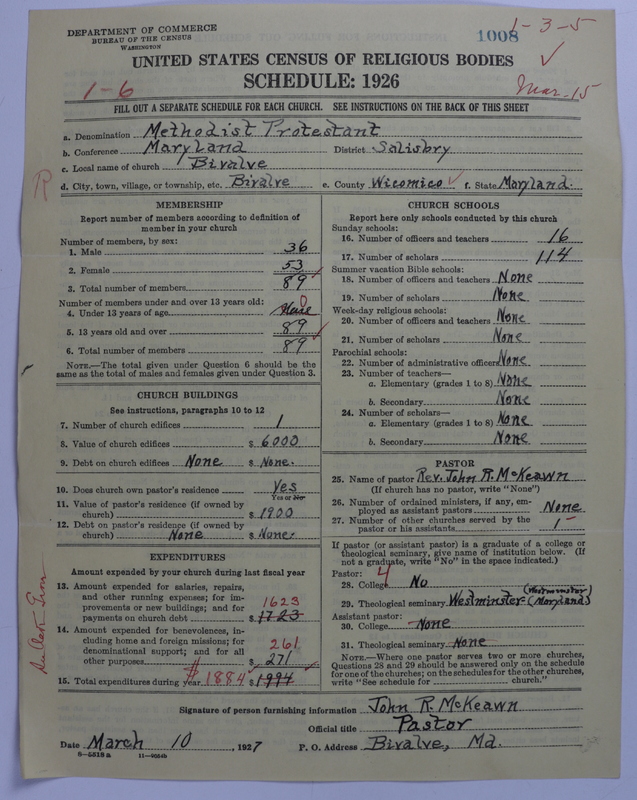 DEPARTMENT OF COMMERCE
BUREAU OF THE CENSUS
WASHINGTON
1008
1-3-5
UNITED STATES CENSUS OF RELIGIOUS BODIES
SCHEDULE: 1926
1-6
Mar. 15
FILL OUT A SEPARATE SCHEDULE FOR EACH CHURCH. SEE INSTRUCTIONS ON THE BACK OF THIS SHEET
a. Denomination Methodist Protestant
b. Conference Maryland District Salisbry
c. Local name of church Bivalve
R
d. City, town, village, or township, etc. Bivalve e. County Wicomico f. State Maryland.
MEMBERSHIP
Report number of members according to definition of
member in your church
Number of members, by sex:
1. Male 36
2. Female 53
3. Total number of members 89
Number of members under and over 13 years old:
4. Under 13 years of age 0
5. 13 years old and over 89
6. Total number of members 89
NOTE.—The total given under Question 6 should be
same as the total of males and females given under Question 3.
CHURCH BUILDINGS
See instructions, paragraphs 10 to 12
7. Number of church edifices 1
8. Value of church edifices $ 6000
9. Debt on church edifices None $ None.
10. Does church own pastor's residence Yes
Yes or No
11. Value of pastor's residence (if owned by
church) $ 1900
12. Debt on pastor's residence (if owned by
church) None $ None.
EXPENDITURES
Amount expended by your church during last fiscal year
13. Amount expended for salaries, repairs,
and other running expenses; for im-
provements or new buildings; and for
payments on church debt 1623 $ 1723
14. Amount expended for benevolences, in-
cluding home and foreign missions; for
denominational support; and for all
other purposes 261 $ 271
15. Total expenditures during year $ 1884 $ 1994
CHURCH SCHOOLS
Report here only schools conducted by this church
Sunday schools:
16. Number of officers and teachers 16
17. Number of scholars 114
Summer vacation Bible schools:
18. Number of officers and teachers None
19. Number of scholars None
Week-day religious schools:
20. Number of officers and teachers None
21. Number of scholars None
Parochial schools:
22. Number of administrative officers None
23. Number of teachers—
a. Elementary (grades 1 to 8) None
b. Secondary None
24. Number of scholars—
a. Elementary (grades 1 to 8) None
b. Secondary None
PASTOR
25. Name of pastor Rev. John R. McKeawn
(If church has no pastor, write "None")
26. Number of ordained ministers, if any, em-
ployed as assistant pastors None
27. Number of other churches served by the
pastor or his assistants 1
If pastor (or assistant pastor) is a graduate of a college or
theological seminary, give name of institution below. (If
not a graduate, write "No" in the space indicated.)
Pastor: 4
28. College No
29. Theological seminary Westminster (Westminster Maryland)
Assistant pastor:
30. College None
31. Theological seminary None
NOTE.—Where one pastor serves two or more churches,
Questions 28 and 29 should be answered only on the schedule
for one of the churches; on the schedules for the other churches,
write "See schedule for church."
Signature of person furnishing information John R. McKeawn
Official title Pastor
Date March 10, 1927 P. O. Address Bivalve, Md.
8-5518a 11-9054b